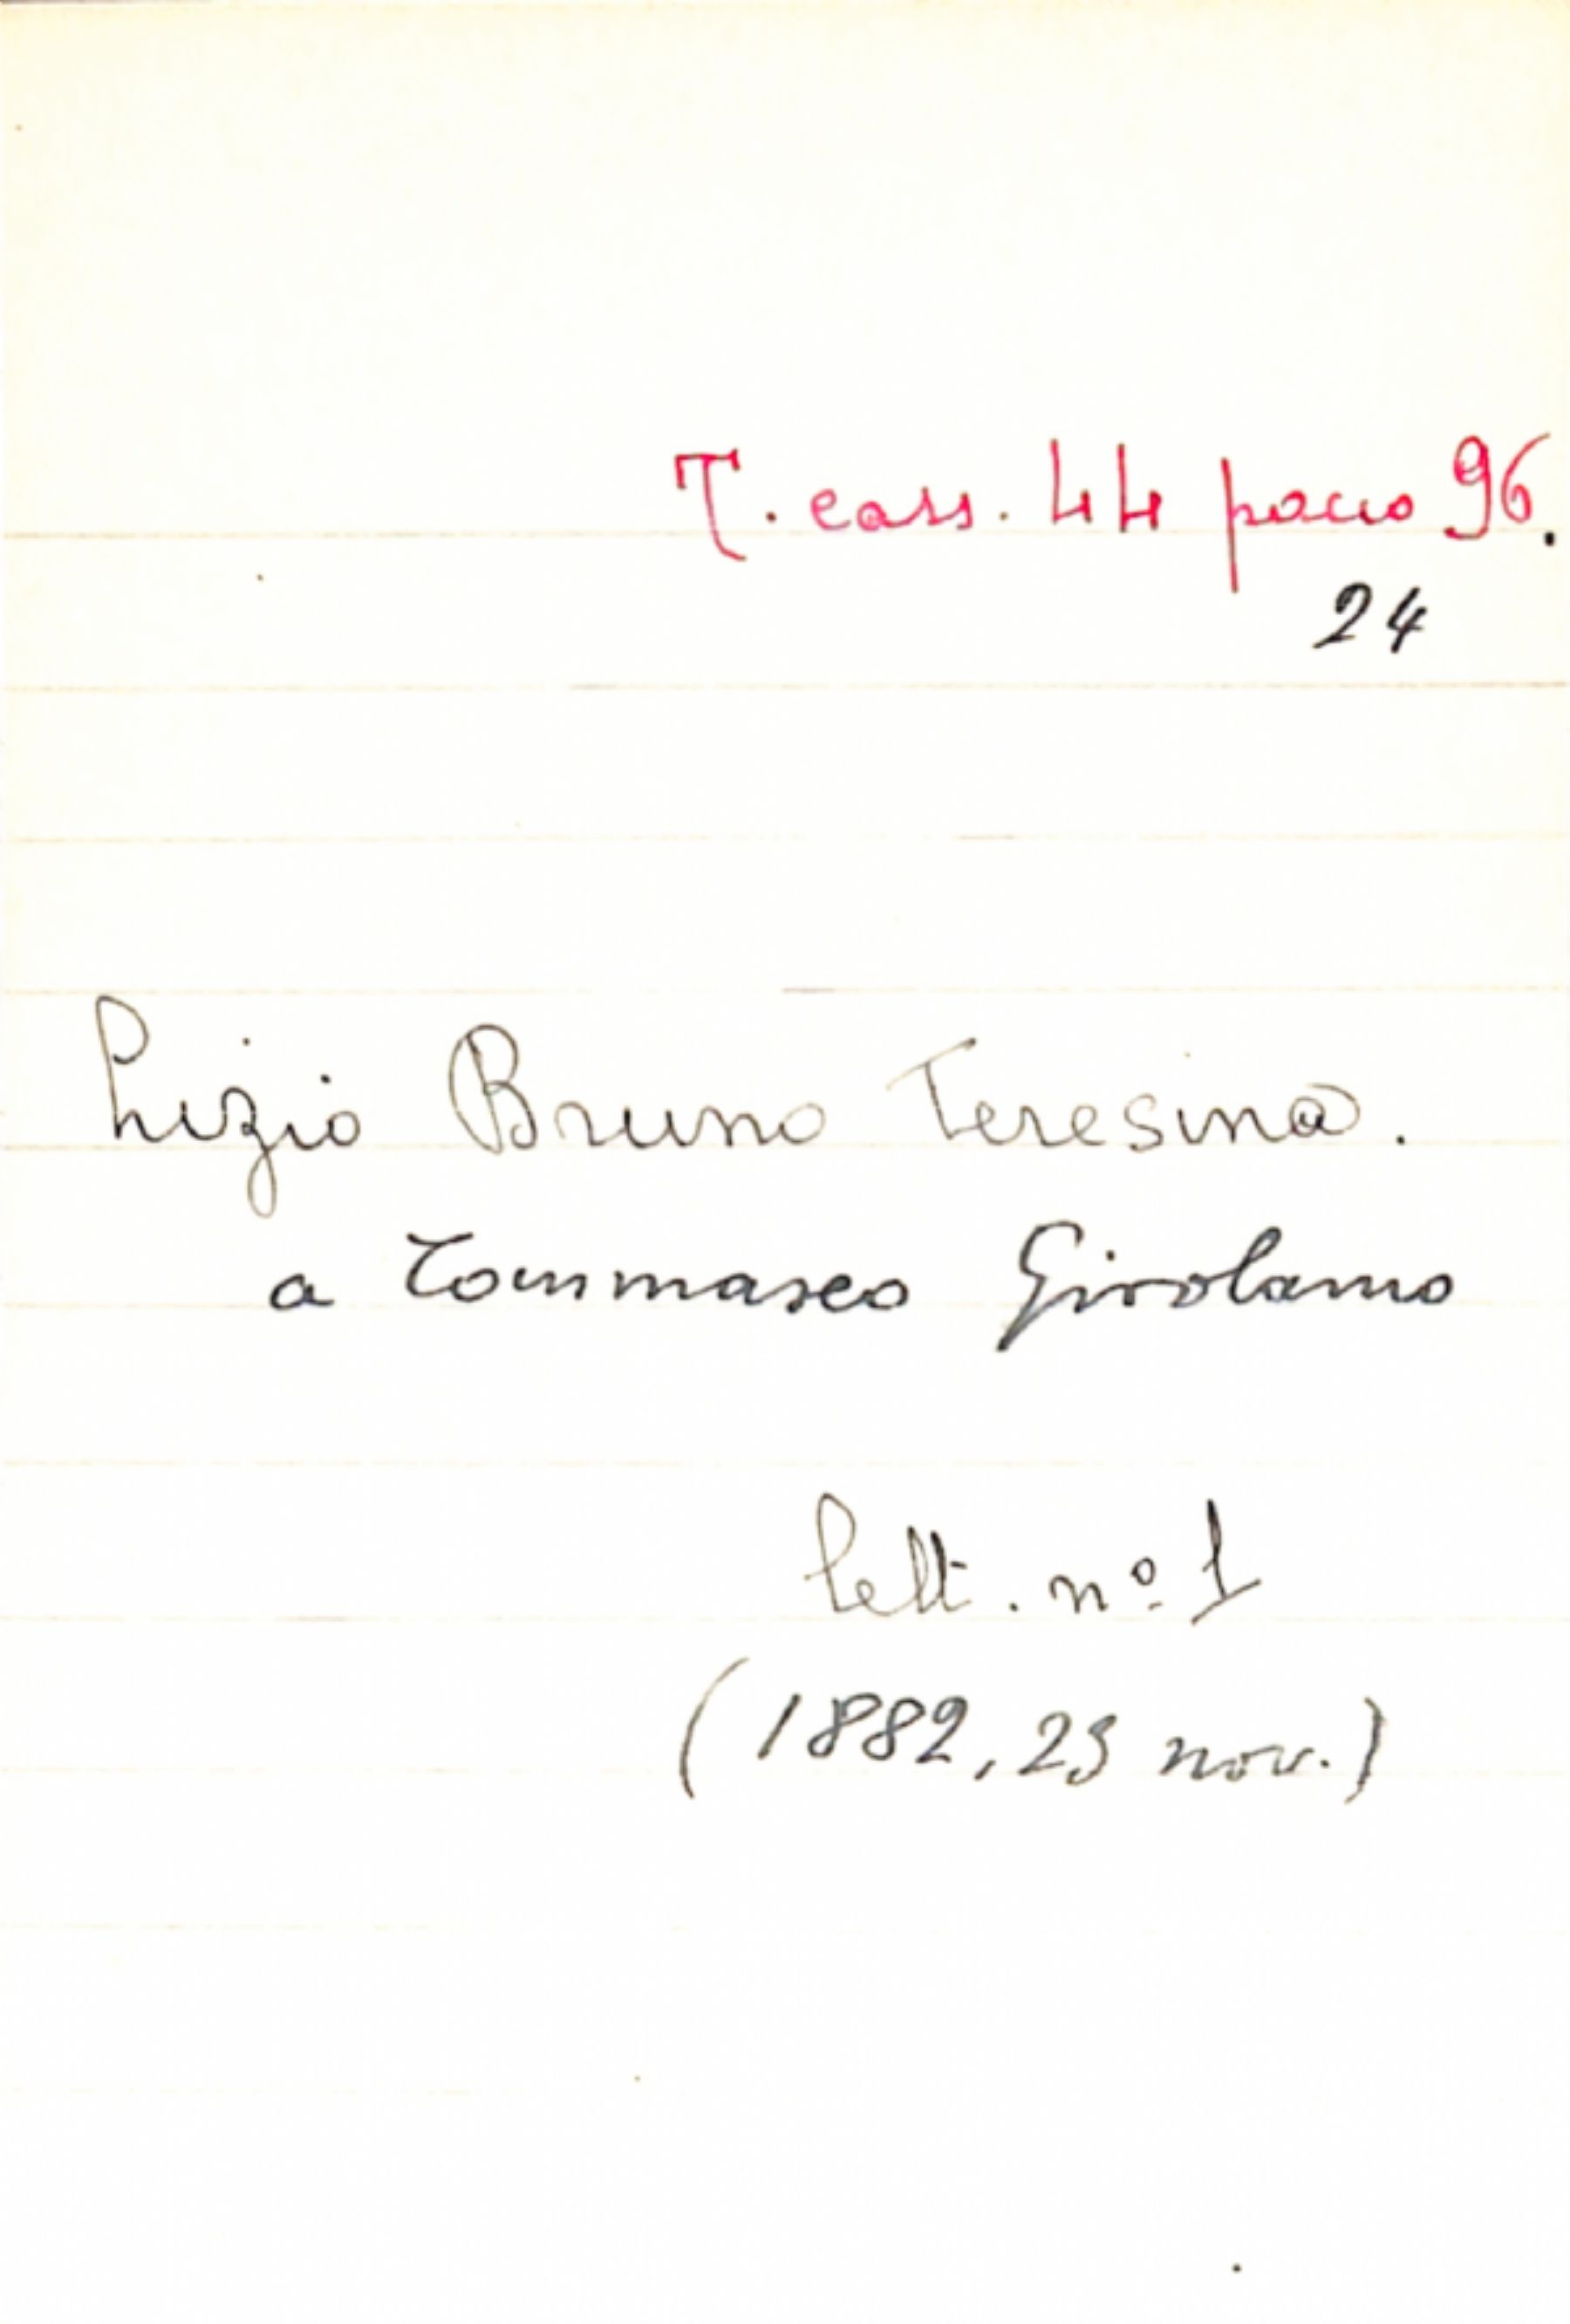 T. cass. 44 pacco 96.
24
Lizio Bruno Teresina.
a Tommaseo Girolamo
lett. nº 1
(1882, 23 nov.)